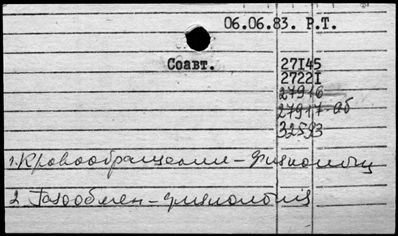 06.06.83. Р.Т.
Соавт.
27I45
2722I
27916
27917-об
32593
1. Кровообращение - физиологич
2. Газообмен - физиология